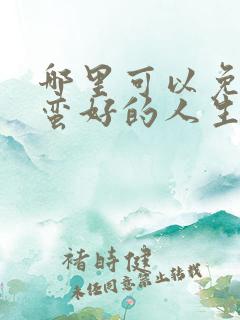 哪里可以免
蛮好的人生
褚时健
未经同意禁止转载